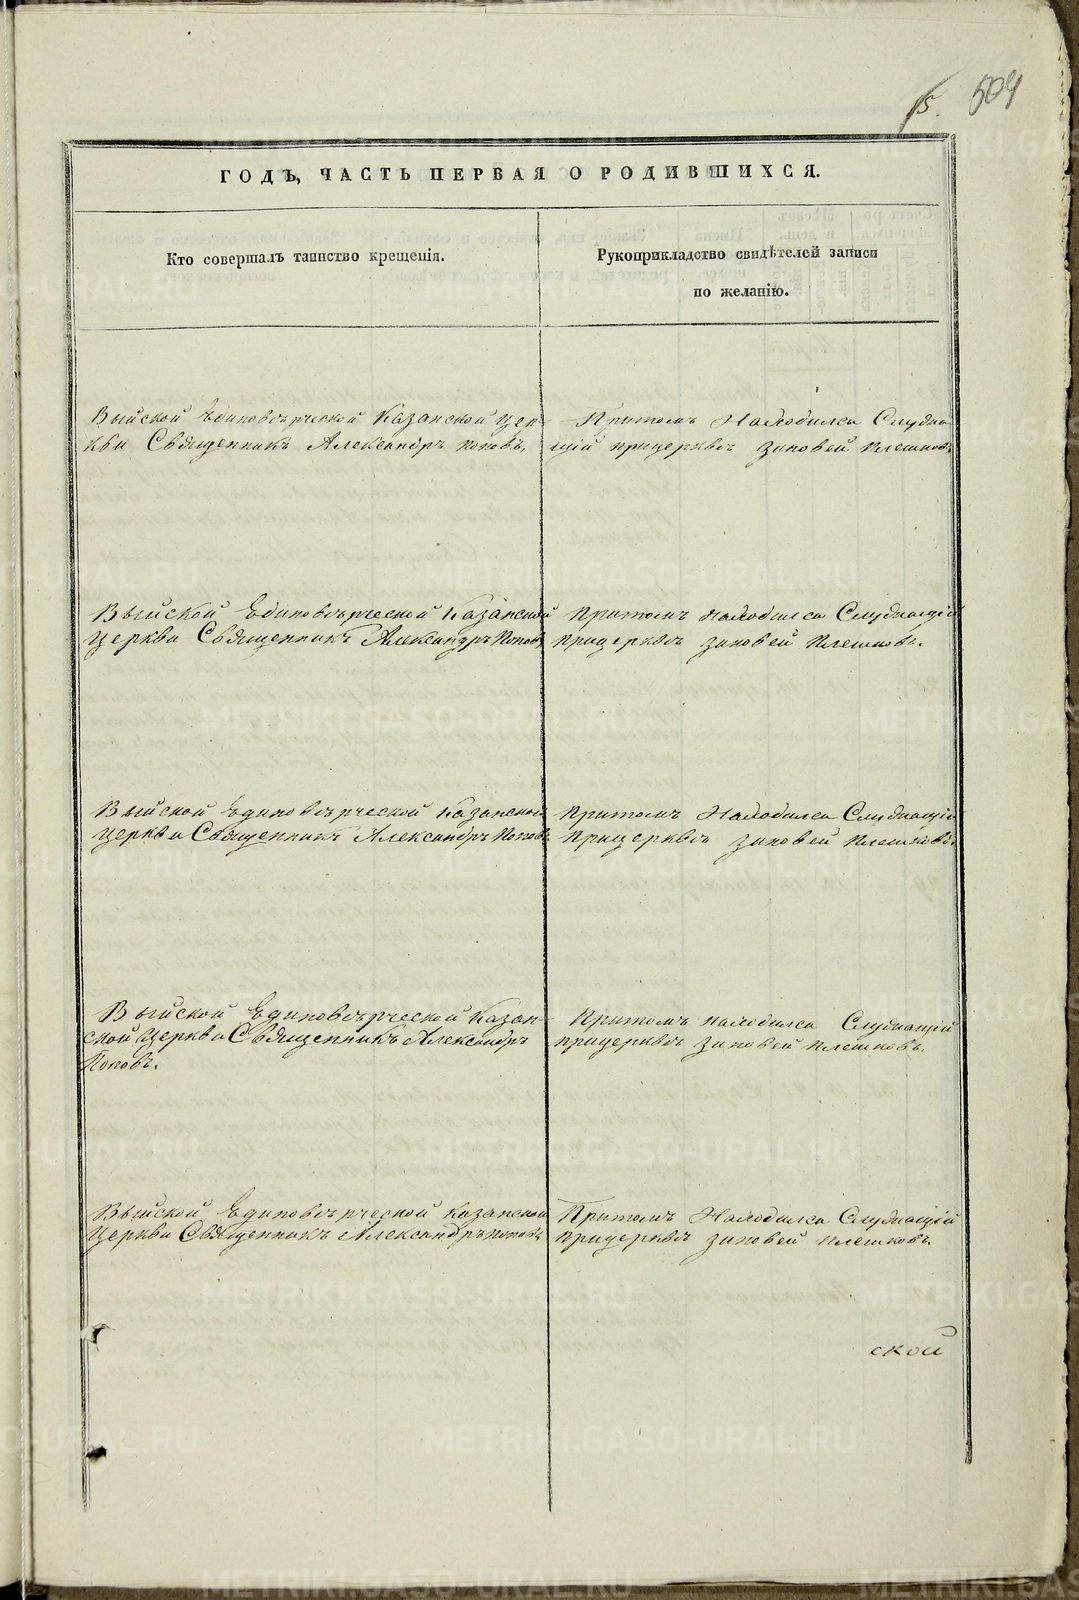 15. 504
ГОДЪ, ЧАСТЬ ПЕРВАЯ О РОДИВШИХСЯ.
Кто совершалъ таинство крещенія.
Рукоприкладство свидѣтелей записи
по желанію.
Выйской Единовѣрческой Казанской цер-
кви Священникъ Александръ Поповъ,
Притомъ Находился Служа-
щій прицерквѣ Зиновей Плешковъ
Выйской Единовѣрческой Казанской
Церкви Священникъ Александръ Поповъ
Притомъ находился Служащій
прицерквѣ Зиновей Плешковъ.
Выйской Единовѣрческой Казанской
Церкви Священникъ Александръ Поповъ
Притомъ Находился Служащій
Прицерквѣ Зиновей Плешковъ.
Выйской Единовѣрческой Казан-
ской Церкви Священникъ Александръ
Поповъ.
Притомъ находился Служащій
прицерквѣ Зиновей Плешковъ.
Выйской Единовѣрческой Казанской
Церкви Священникъ Александръ Поповъ
Притомъ Находился Служащій
прицерквѣ Зиновей Плешковъ.
ской
METRIKI.GASO-URAL.RU